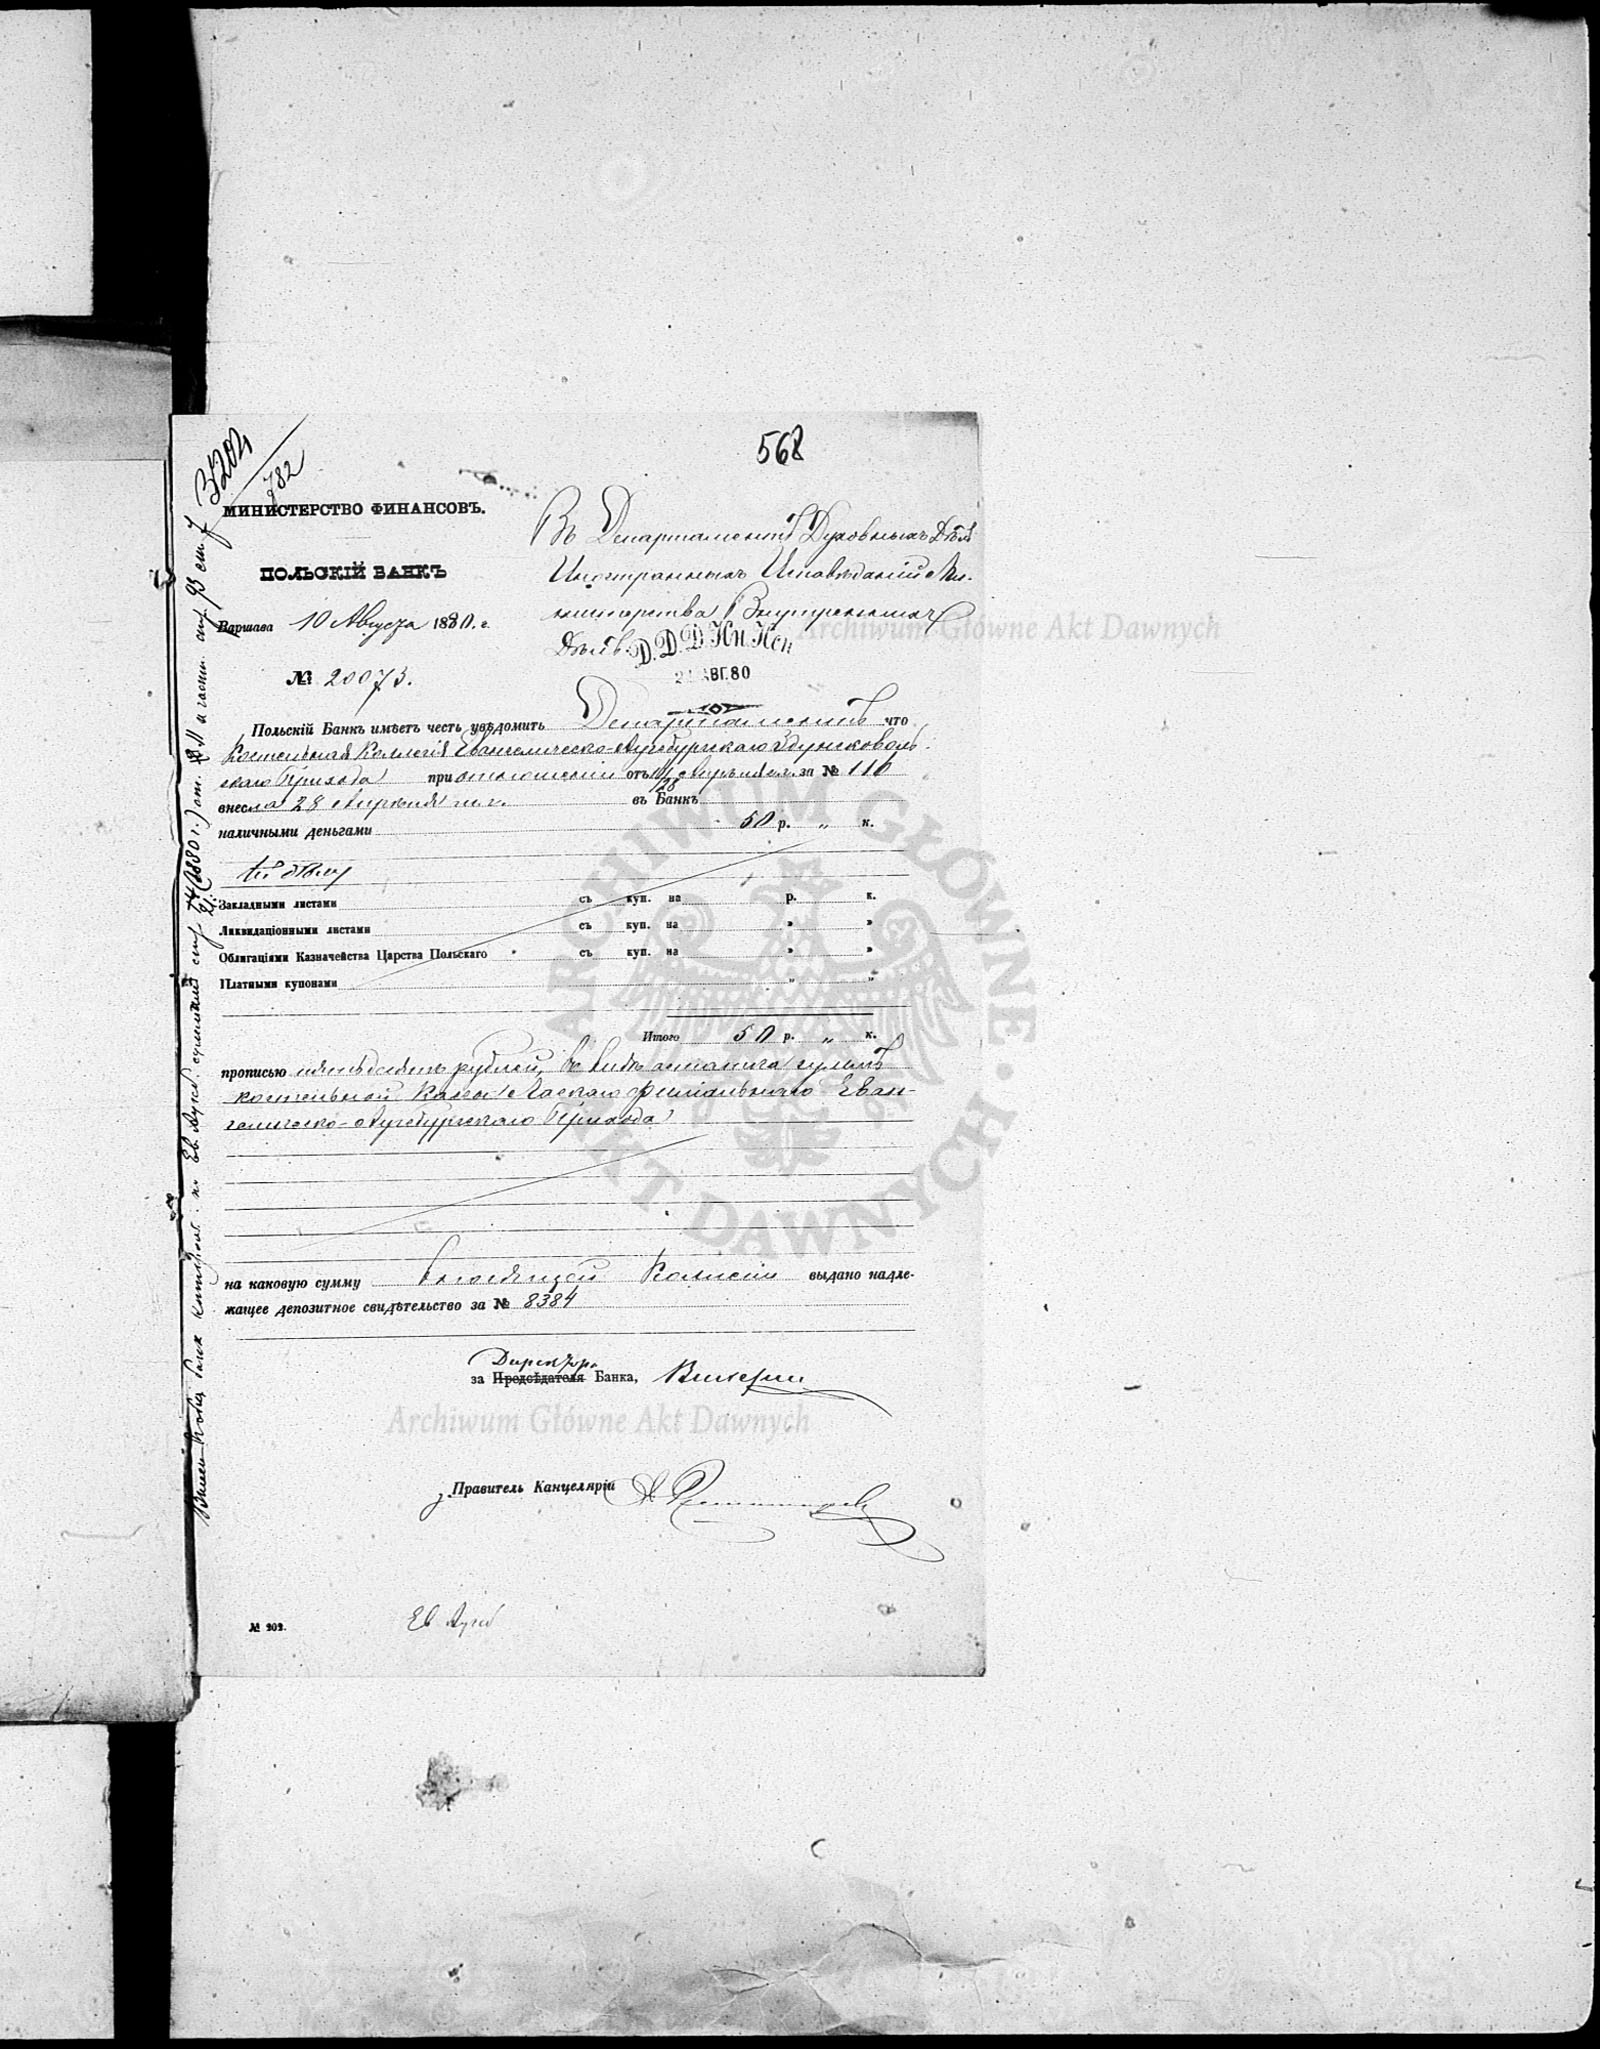 568
3204
782
МИНИСТЕРСТВО ФИНАНСОВЪ.
ПОЛЬСКІЙ БАНКЪ
Варшава 10 Августа 1880. г.
№ 20073.
Въ Департаментъ Духовныхъ Дѣлъ
Иностранныхъ Исповѣданій Ми-
нистерства Внутреннихъ
Дѣлъ.
Д. Д. Д. Ин. Исп
АВГ. 80
Польскій Банкъ имѣетъ честь увѣдомить Департаментъ что
Костельная Коллегія Евангелическо-Аугсбургскаго Здунсковоль-
скаго Прихода при отношеніи отъ 16/28 Апрѣля с.г. за № 116
внесла 28 Апрѣля т. г. въ Банкъ
наличными деньгами 50 р. „ к.
Закладными листами съ куп. на р. к.
Ликвидаціонными листами съ куп. на " "
Облигаціями Казначейства Царства Польскаго съ куп. на " "
Платными купонами " "
Итого 50 р. „ к.
прописью пятьдесятъ рублей, въ видѣ остатка суммъ
костельной кассы Ласкаго Филіальнаго Еван-
гелическо-Аугсбургскаго Прихода
на каковую сумму вносящей Коллегіи выдано надле-
жащее депозитное свидѣтельство за № 8384
Директора
за Предсѣдателя Банка,
Правитель Канцеляріи
№ 202.
Ев Аугсб
Archiwum Główne Akt Dawnych
Archiwum Główne Akt Dawnych
ARCHIWUM GŁÓWNE · AKT DAWNYCH ·